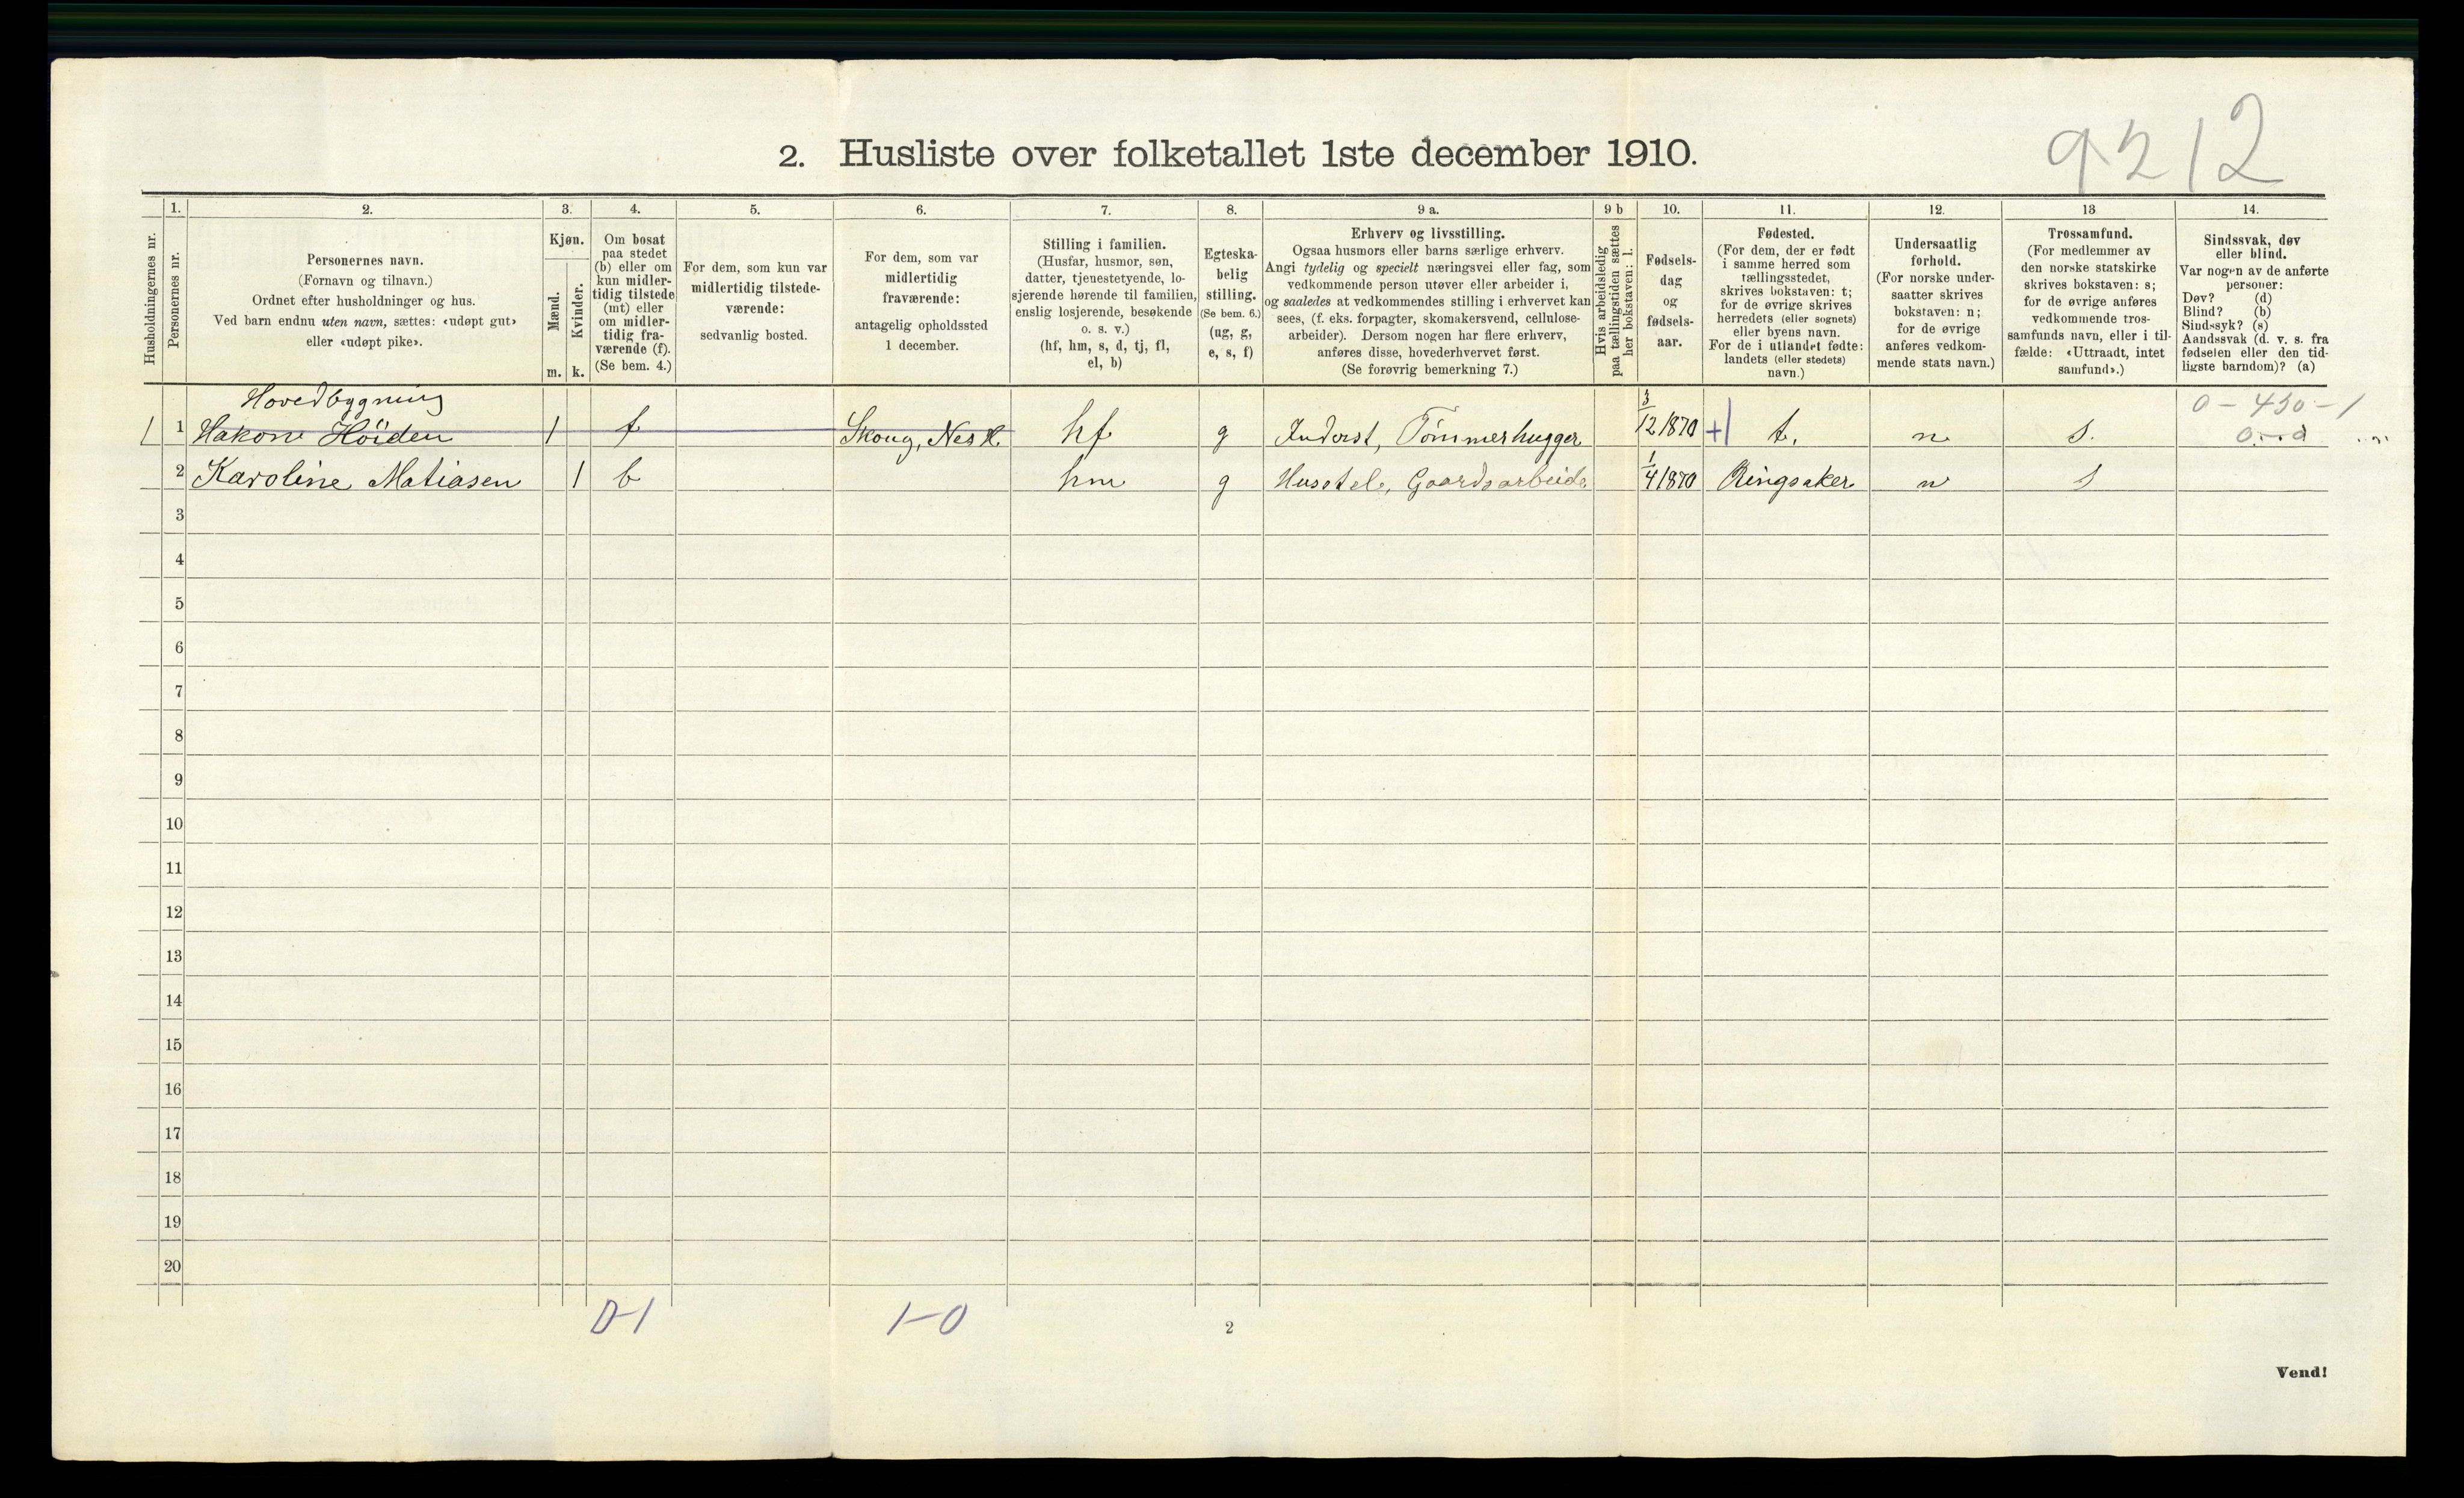 9212
2. Husliste over folketallet 1ste december 1910.
Husholdningernes nr.
1.
Personernes nr.
2.
Personernes navn.
(Fornavn og tilnavn.)
Ordnet efter husholdninger og hus.
Ved barn endnu uten navn, sættes: «udøpt gut»
eller «udøpt pike».
3.
Kjøn.
Mænd.
Kvinder.
m. k.
4.
Om bosat
paa stedet
(b) eller om
kun midler-
tidig tilstede
(mt) eller
om midler-
tidig fra-
værende (f).
(Se bem. 4.)
5.
For dem, som kun var
midlertidig tilstede-
værende:
sedvanlig bosted.
6.
For dem, som var
midlertidig
fraværende:
antagelig opholdssted
1 december.
7.
Stilling i familien.
(Husfar, husmor, søn,
datter, tjenestetyende, lo-
sjerende hørende til familien,
enslig losjerende, besøkende
o. s. v.)
(hf, hm, s, d, tj, fl,
el, b)
8.
Egteska-
belig
stilling.
(Se bem. 6.)
(ug, g,
e, s, f)
9 a.
Erhverv og livsstilling.
Ogsaa husmors eller barns særlige erhverv.
Angi tydelig og specielt næringsvei eller fag, som
vedkommende person utøver eller arbeider i,
og saaledes at vedkommendes stilling i erhvervet kan
sees, (f. eks. forpagter, skomakersvend, cellulose-
arbeider). Dersom nogen har flere erhverv,
anføres disse, hovederhvervet først.
(Se forøvrig bemerkning 7.)
9 b
Hvis arbeidsledig
paa tællingstiden sættes
her bokstaven: l.
10.
Fødsels-
dag
og
fødsels-
aar.
11.
Fødested.
(For dem, der er født
i samme herred som
tællingsstedet,
skrives bokstaven: t;
for de øvrige skrives
herredets (eller sognets)
eller byens navn.
For de i utlandet fødte:
landets (eller stedets)
navn.)
12.
Undersaatlig
forhold.
(For norske under-
saatter skrives
bokstaven: n;
for de øvrige
anføres vedkom-
mende stats navn.)
13
Trossamfund.
(For medlemmer av
den norske statskirke
skrives bokstaven: s;
for de øvrige anføres
vedkommende tros-
samfunds navn, eller i til-
fælde: «Uttraadt, intet
samfund».)
14.
Sindssvak, døv
eller blind.
Var nogen av de anførte
personer:
Døv? (d)
Blind? (b)
Sindssyk? (s)
Aandssvak (d. v. s. fra
fødselen eller den tid-
ligste barndom)? (a)
Hovedbygning
1 1 Hakon Höiden 1 f Skoug, Nes H. hf g Inderst, Tömmerhugger 3/12 1870 +1 t. n s.
2 Karoline Matiasen 1 b hm g Husstel, Gaardsarbeide 1/4 1870 Ringsaker n s
3
4
5
6
7
8
9
10
11
12
13
14
15
16
17
18
19
20
0-1
1-0
2
Vend!